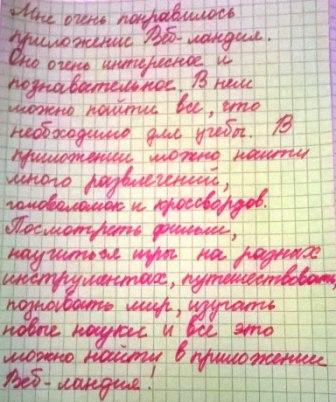 Мне очень понравилось
приложение Веб-ландия.
Оно очень интересное и
познавательное. В нем
можно найти все, что
необходимо для учебы. В
приложении можно найти
много развлечений,
головоломок и кроссвордов.
Посмотреть фильм,
научиться игры на разных
инструментах, путешествовать,
познавать мир, изучать
новые науки и все это
можно найти в приложении
Веб-ландия!